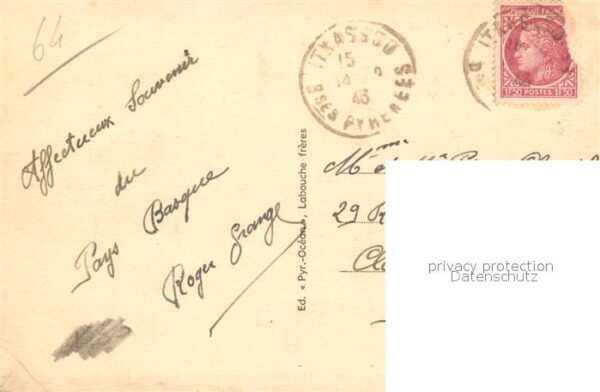 64
Affectueux Souvenir
du
Pays Basque
Roger Grange
ITXASSOU
15
14
46
Bses PYRENEES
Ed. « Pyr.-Océan », Labouche frères
ITXASSOU
1F50 POSTES 1F50
Mme et Mr
29
privacy protection
Datenschutz